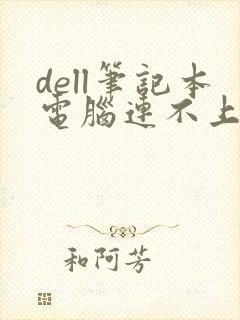 dell筆記本
電腦連不上
和阿芳